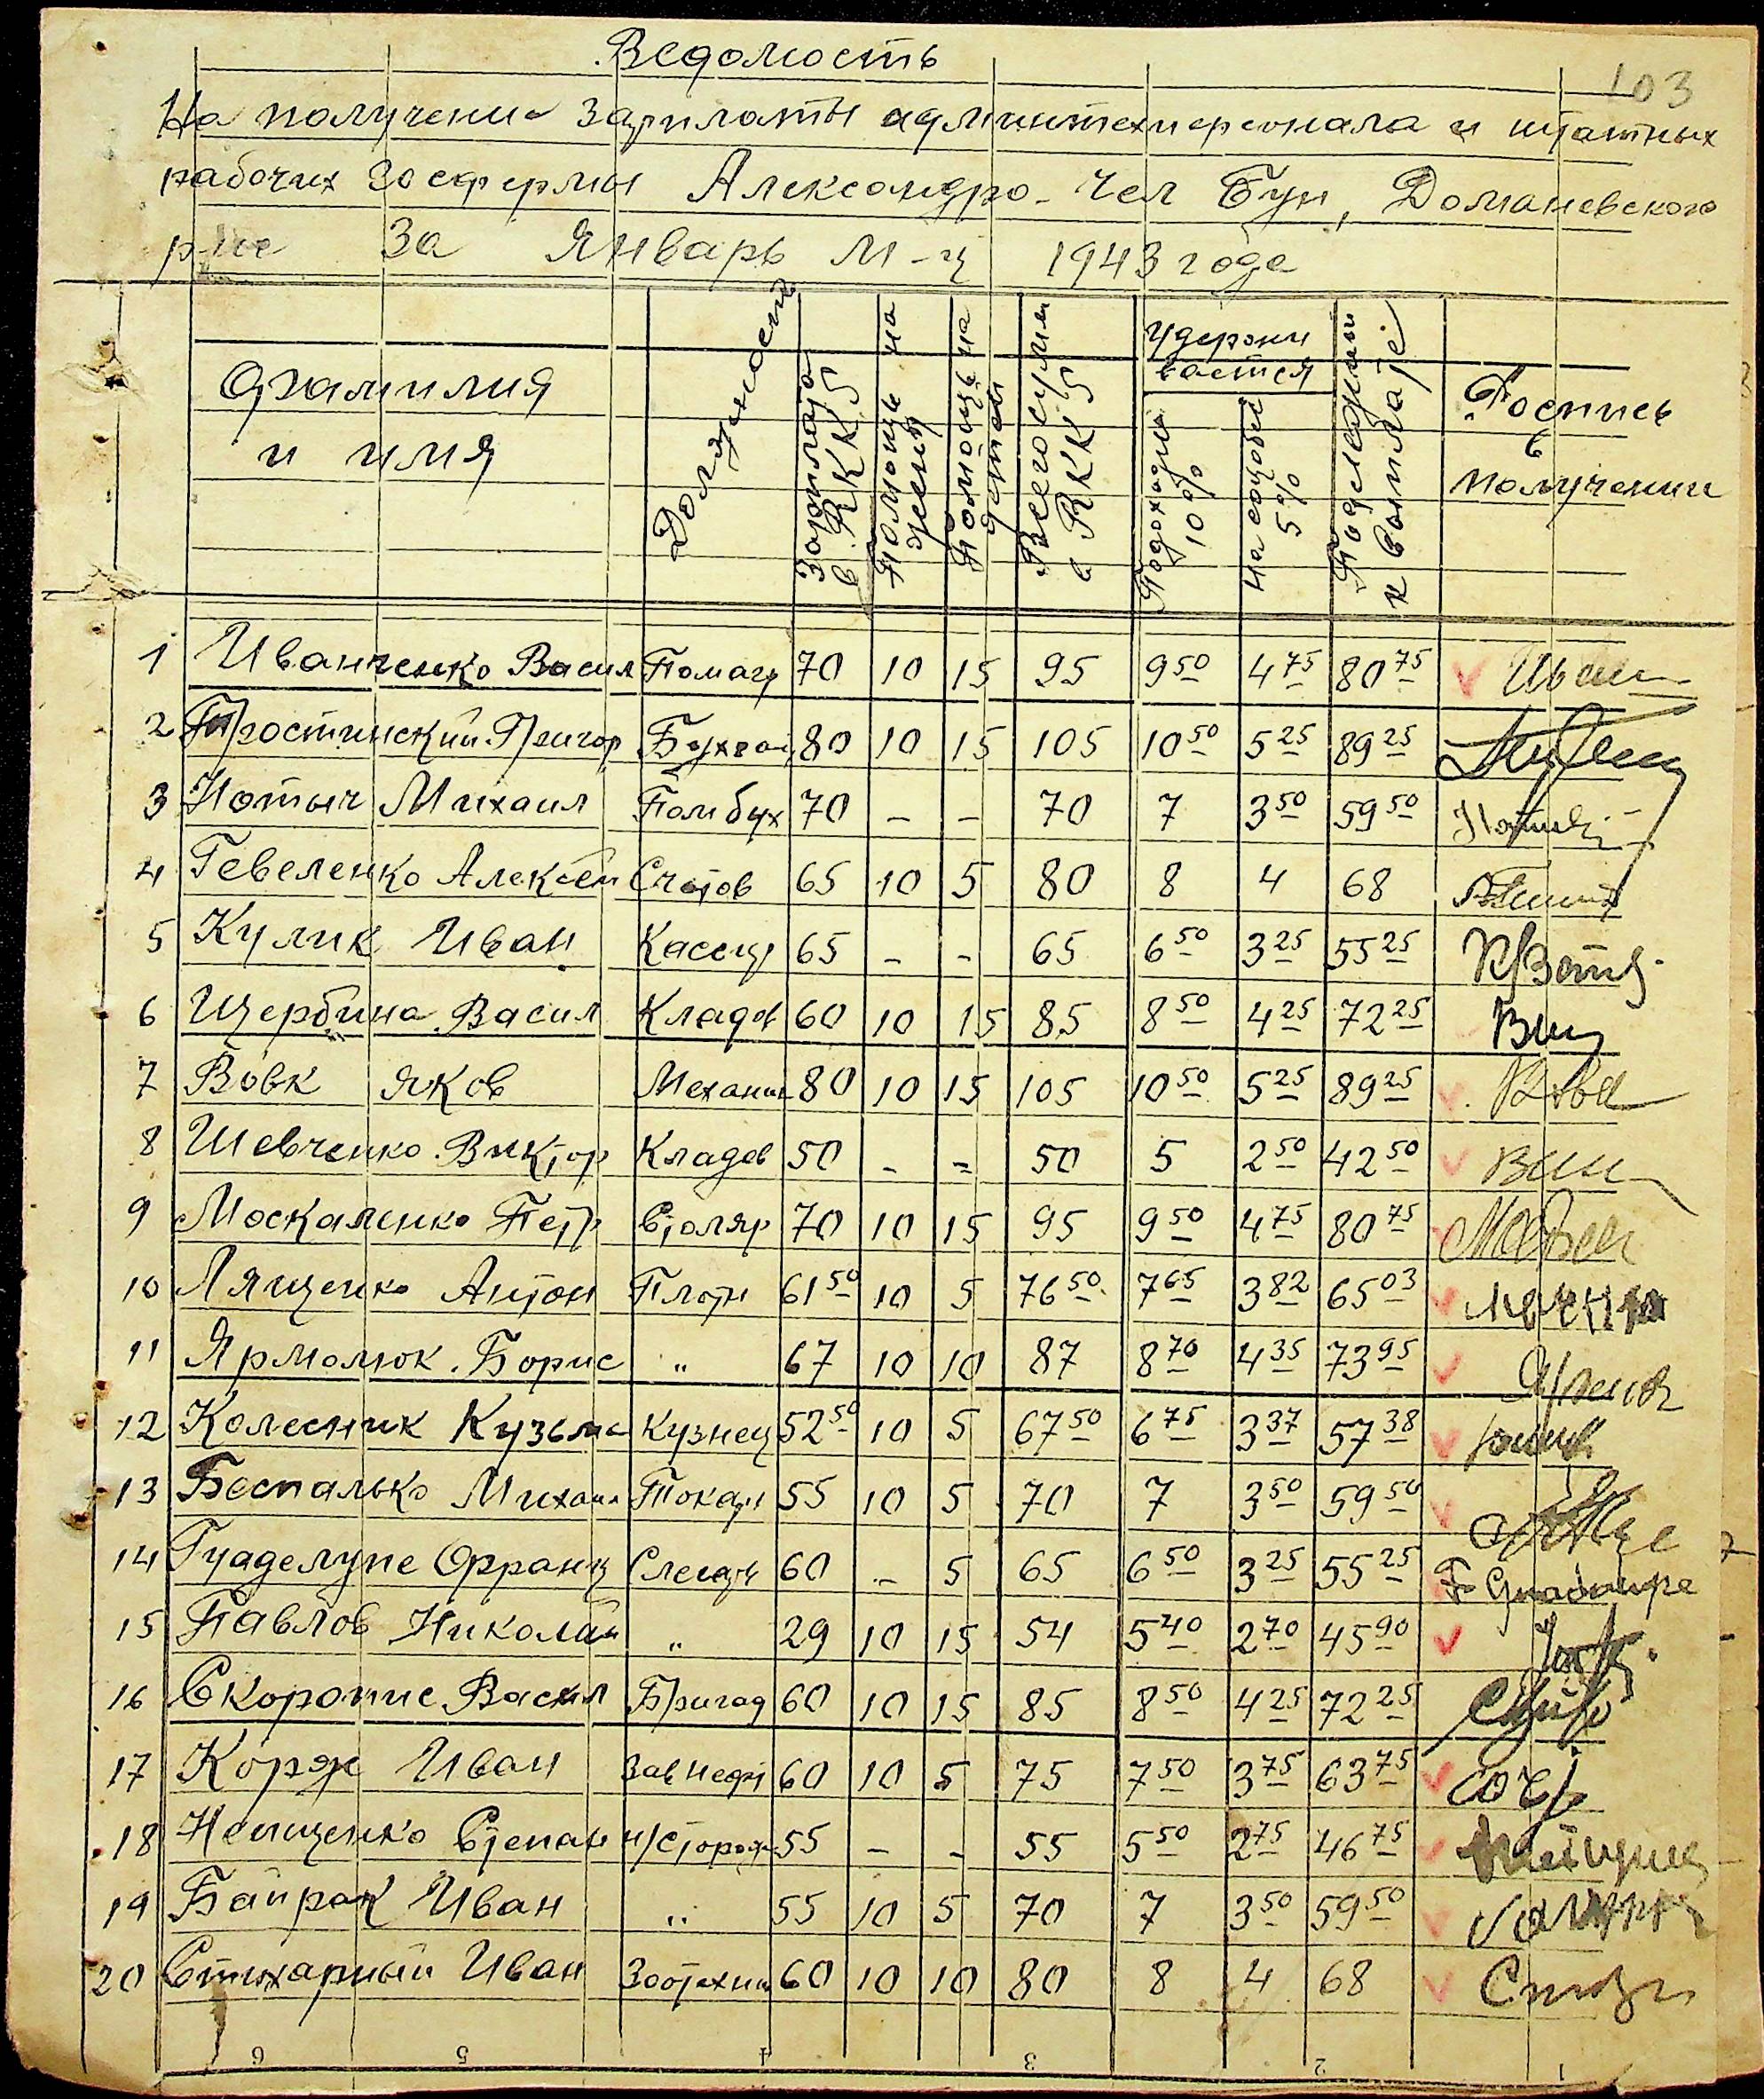 Ведомость
103
На получение зарплаты админтехперсонала и штатных
рабочих госфермы Александро- Чел Бун, Доманевского
р-не за Январь м-ц 1943 года
Фамилия и имя Должность Зарплата в RKKS Помощь на жену Помощь на детей Всего сумма в RKKS Удерживается Подоходн 10% На соцобес 5% Подлежащий к выплате Роспись в получении
1 Иванченко Васил Помагр 70 10 15 95 9 50 4 75 80 75 Иван
2 Простинский Григор Бухгал 80 10 15 105 10 50 5 25 89 25
3 Нотыч Михаил Помбух 70 – – 70 7 3 50 59 50
4 Гевеленко Алексей Счетов 65 10 5 80 8 4 68
5 Кулик Иван Кассир 65 – – 65 6 50 3 25 55 25
6 Щербина Васил Кладов 60 10 15 85 8 50 4 25 72 25
7 Вовк Яков Механик 80 10 15 105 10 50 5 25 89 25
8 Шевченко Виктор Кладов 50 – – 50 5 2 50 42 50
9 Москаленко Петр Столяр 70 10 15 95 9 50 4 75 80 75
10 Лященко Антон Плотн 61 50 10 5 76 50 7 65 3 82 65 03
11 Ярмолюк Борис " 67 10 10 87 8 70 4 35 73 95
12 Колесник Кузьма Кузнец 52 50 10 5 67 50 6 75 3 37 57 38
13 Беспалько Михаил Токарь 55 10 5 70 7 3 50 59 50
14 Гуаделупе Франц Слесарь 60 – 5 65 6 50 3 25 55 25 F Guadalupe
15 Павлов Николай " 29 10 15 54 5 40 2 70 45 90
16 Скоропис Васил Бригад 60 10 15 85 8 50 4 25 72 25
17 Корж Иван Зав нефт 60 10 5 75 7 50 3 75 63 75
18 Нещенко Степан н/сторож 55 – – 55 5 50 2 75 46 75
19 Байрак Иван " 55 10 5 70 7 3 50 59 50
20 Стихарный Иван Зоотехник 60 10 10 80 8 4 68
6 5 4 3 2 1